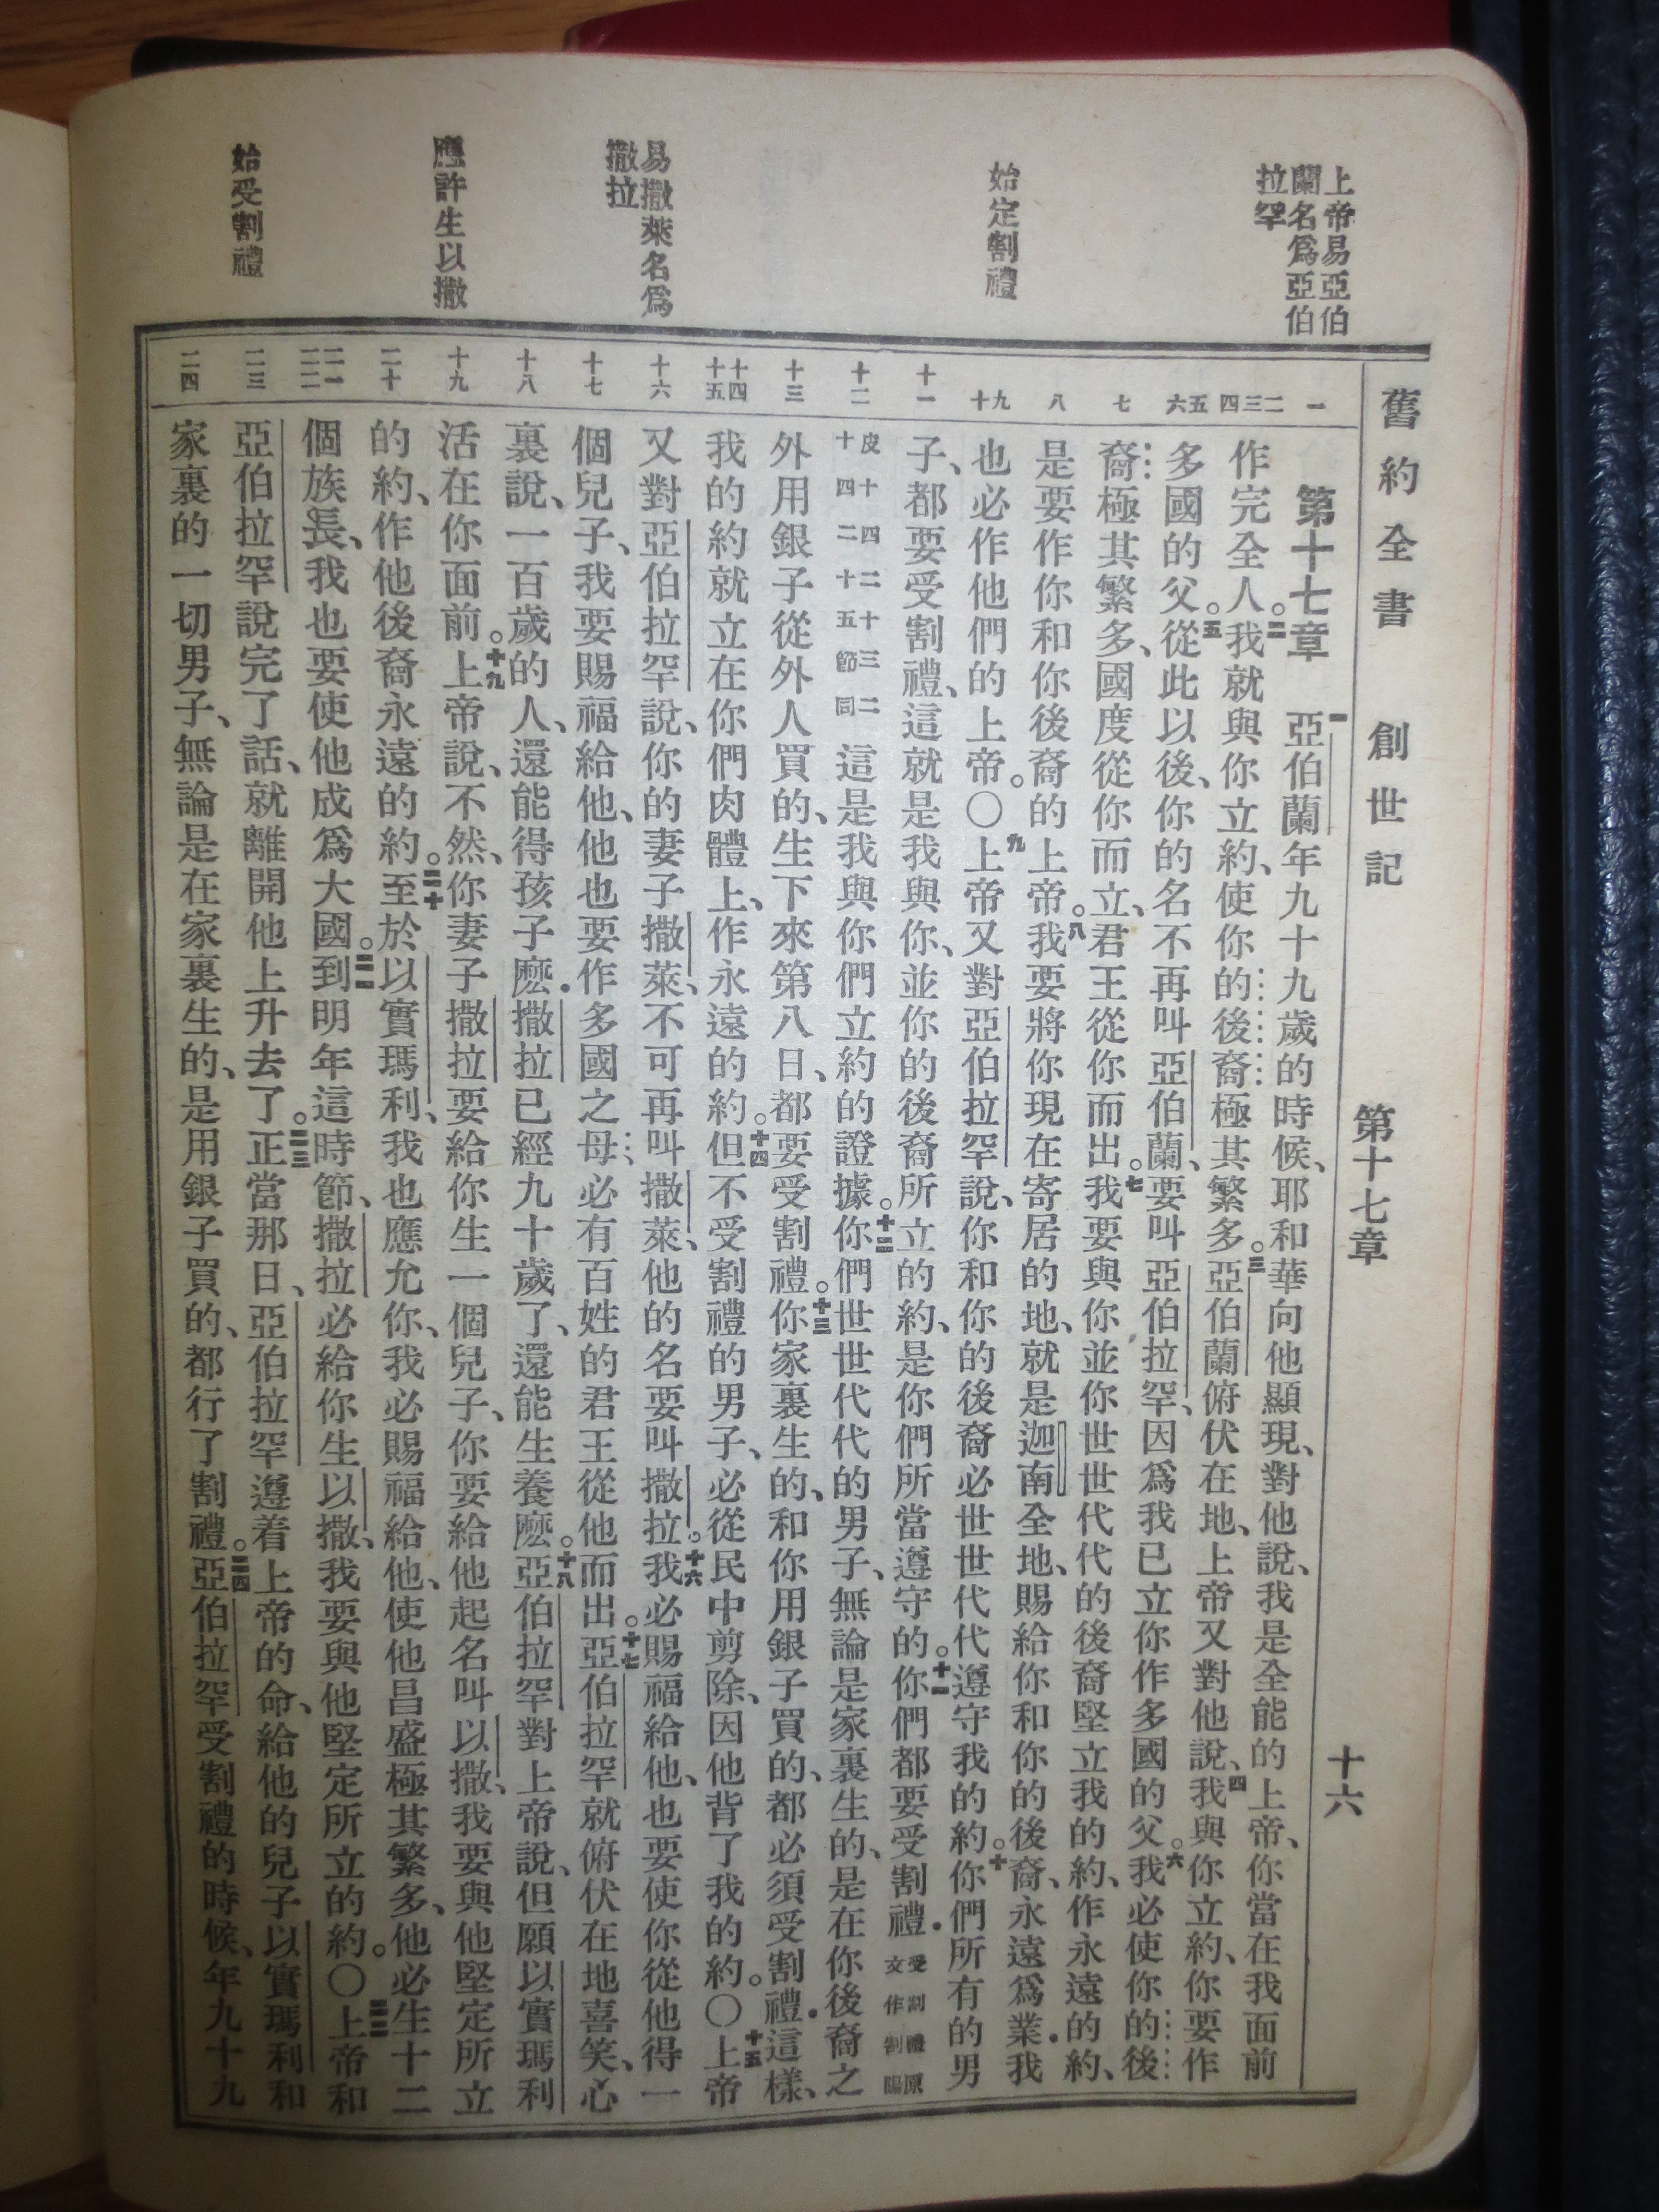 舊約全書 創世記 第十七章 十六
上帝易亞伯
蘭名爲亞伯
拉罕
始定割禮
易撒萊名爲
撒拉
應許生以撒
始受割禮
一
二
三
四
五
六
七
八
九
十
十一
十二
十三
十四
十五
十六
十七
十八
十九
二十
二一
二二
二三
二四
第十七章 一亞伯蘭年九十九歲的時候、耶和華向他顯現、對他說、我是全能的上帝、你當在我面前
作完全人。二我就與你立約、使你的後裔極其繁多。三亞伯蘭俯伏在地、上帝又對他說、四我與你立約、你要作
多國的父。五從此以後、你的名不再叫亞伯蘭、要叫亞伯拉罕、因爲我已立你作多國的父。六我必使你的後
裔極其繁多、國度從你而立、君王從你而出。七我要與你並你世世代代的後裔堅立我的約、作永遠的約、
是要作你和你後裔的上帝。八我要將你現在寄居的地、就是迦南全地、賜給你和你的後裔、永遠爲業．我
也必作他們的上帝。〇九上帝又對亞伯拉罕說、你和你的後裔必世世代代遵守我的約。十你們所有的男
子、都要受割禮、這就是我與你、並你的後裔所立的約、是你們所當遵守的。十一你們都要受割禮．受割禮原文作割陽
皮十四二十三二十四二十五節同 這是我與你們立約的證據。十二你們世世代代的男子、無論是家裏生的、是在你後裔之
外用銀子從外人買的、生下來第八日、都要受割禮。十三你家裏生的、和你用銀子買的、都必須受割禮．這樣、
我的約就立在你們肉體上、作永遠的約。十四但不受割禮的男子、必從民中剪除、因他背了我的約。〇十五上帝
又對亞伯拉罕說、你的妻子撒萊、不可再叫撒萊、他的名要叫撒拉。十六我必賜福給他、也要使你從他得一
個兒子、我要賜福給他、他也要作多國之母．必有百姓的君王從他而出。十七亞伯拉罕就俯伏在地喜笑、心
裏說、一百歲的人、還能得孩子麽．撒拉已經九十歲了、還能生養麽。十八亞伯拉罕對上帝說、但願以實瑪利
活在你面前。十九上帝說、不然、你妻子撒拉要給你生一個兒子、你要給他起名叫以撒、我要與他堅定所立
的約、作他後裔永遠的約。二十至於以實瑪利、我也應允你、我必賜福給他、使他昌盛極其繁多、他必生十二
個族長、我也要使他成爲大國。二一到明年這時節、撒拉必給你生以撒、我要與他堅定所立的約。〇二二上帝和
亞伯拉罕說完了話、就離開他上升去了。二三正當那日、亞伯拉罕遵着上帝的命、給他的兒子以實瑪利和
家裏的一切男子、無論是在家裏生的、是用銀子買的、都行了割禮。二四亞伯拉罕受割禮的時候、年九十九